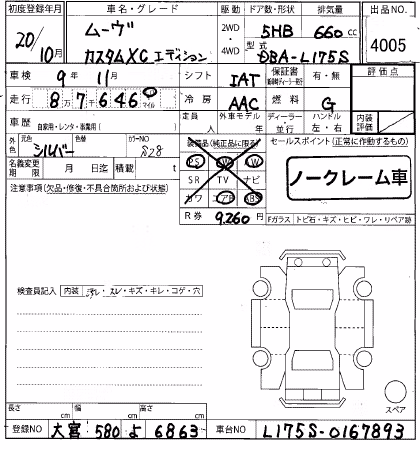 初度登録年月 車名・グレード 駆動 ドア数・形状 排気量 出品NO.
20/10月 ムーヴ カスタムXC エディション 2WD・4WD 5HB 660cc 4005
型式 DBA-L175S
車検 9年 11月 シフト IAT 保証書 有・無 評価点
走行 8 7 6 4 6 0 マイル 冷房 AAC 燃料 G
車歴 自家用・レンタ・事業用( ) 定員 人 外車モデル 年 ディーラー・並行 ハンドル 左・右 内装評価
外色 元色 シルバー 色替 カラーNO S28 装備品(純正品に限る) セールスポイント(正常に作動するもの)
PS PW ノークレーム車
名義変更期限 月 日迄 積載 t SR TV ナビ
注意事項(欠品・修復・不具合箇所および状態) カワ エアB ABS
R券 9,260円 Fガラス トビ石・キズ・ヒビ・ワレ・リペア跡
検査員記入 内装 ヨゴレ・スレ・キズ・キレ・コゲ・穴
スペア
長さ cm 幅 cm 高さ cm
登録NO 大宮 580 よ 6863 車台NO L175S-0167893